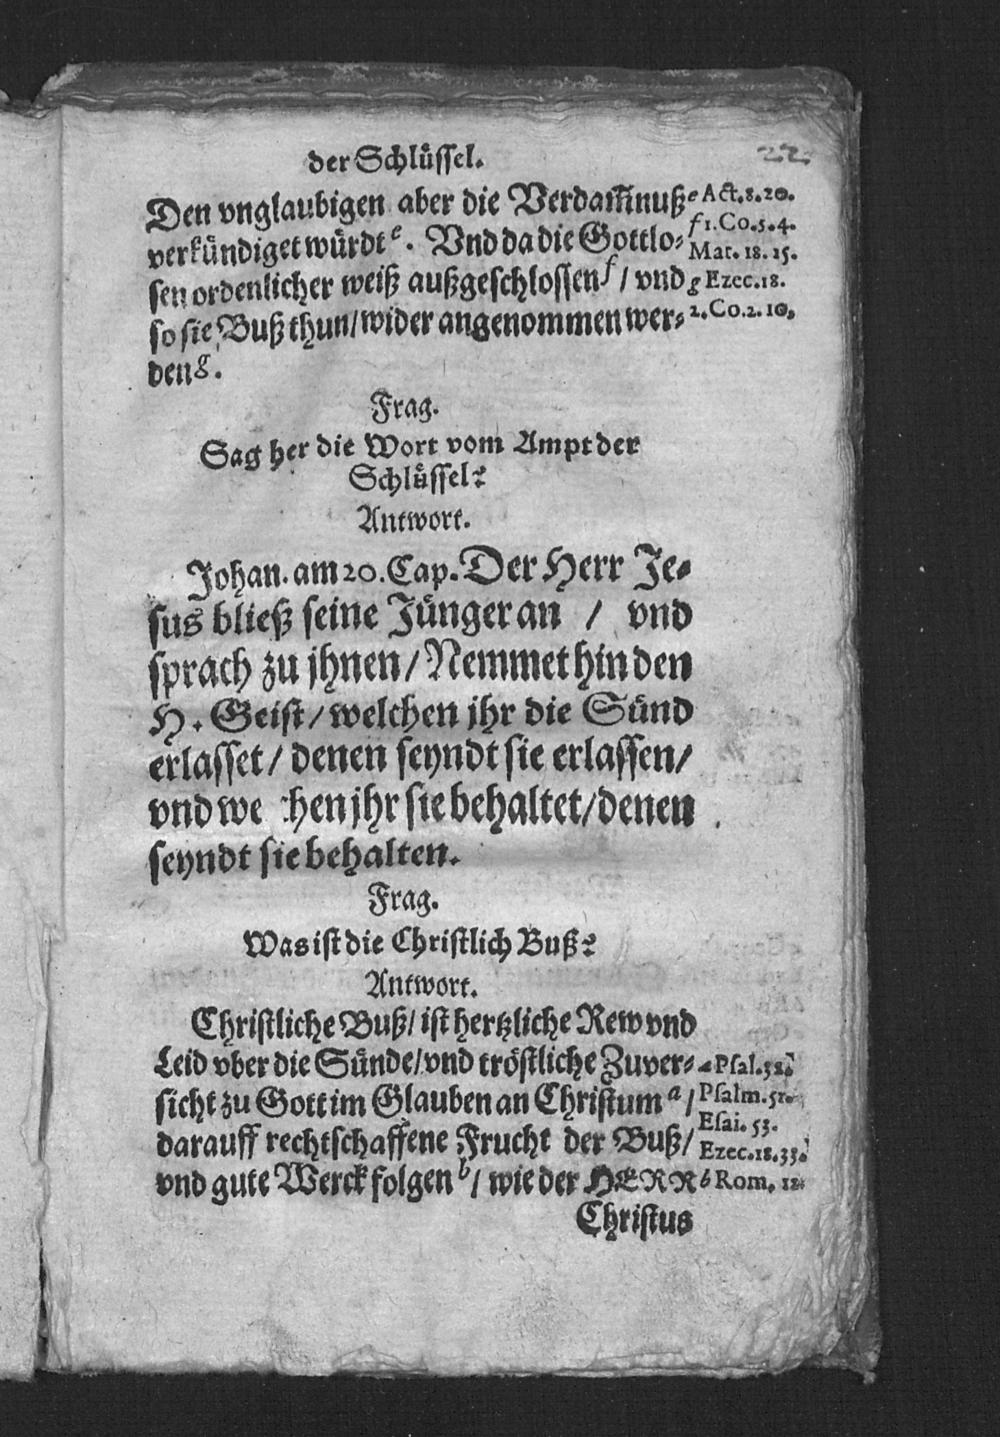 der Schlüssel.
22.
Den vnglaubigen aber die Verdam̃nuß
verkündiget würdt e. Vnd da die Gottlo-
sen ordenlicher weiß außgeschlossen f / vnd
so sie Buß thun / wider angenommen wer-
den g.
e Act. 8. 20.
f 1. Co. 5. 4.
Mat. 18. 15.
g Ezec. 18.
2. Co. 2. 10.
Frag.
Sag her die Wort vom Ampt der
Schlüssel?
Antwort.
Johan. am 20. Cap. Der Herr Je-
sus bließ seine Jünger an / vnd
sprach zu jhnen / Nemmet hin den
H. Geist / welchen jhr die Sünd
erlasset / denen seyndt sie erlassen /
vnd we chen jhr sie behaltet / denen
seyndt sie behalten.
Frag.
Was ist die Christlich Buß?
Antwort.
Christliche Buß / ist hertzliche Rew vnd
Leid vber die Sünde / vnd tröstliche Zuver-
sicht zu Gott im Glauben an Christum a /
darauff rechtschaffene Frucht der Buß /
vnd gute Werck folgen b / wie der HERR
a Psal. 32.
Psalm. 51.
Esai. 53.
Ezec. 18. 33.
b Rom. 12.
Christus